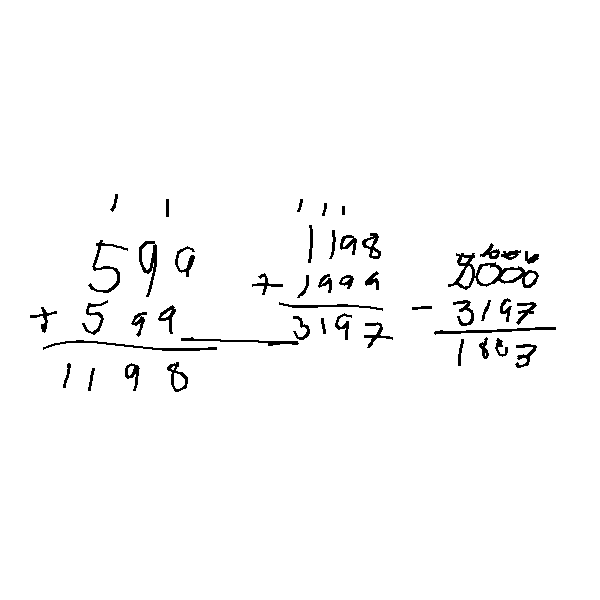 1 1
599
+ 599
1198
1 1 1
1198
+ 1999
3197
5000
- 3197